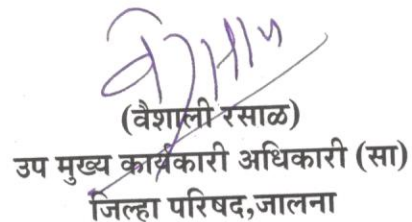 (वैशाली रसाळ)
उप मुख्य कार्यकारी अधिकारी (सा)
जिल्हा परिषद,जालना